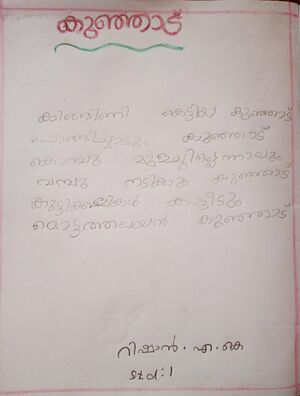 കുഞ്ഞാട്
കിങ്ങിണി കെട്ടിയ കുഞ്ഞാട്
കുഞ്ഞാട്
കൊമ്പു മുളച്ചില്ലെന്നാലും
വമ്പു നടിക്കും കുഞ്ഞാട്
കാട്ടിടും
മൊട്ടത്തലയൻ കുഞ്ഞാട്
റിഷാൻ . എ . കെ
std : 1